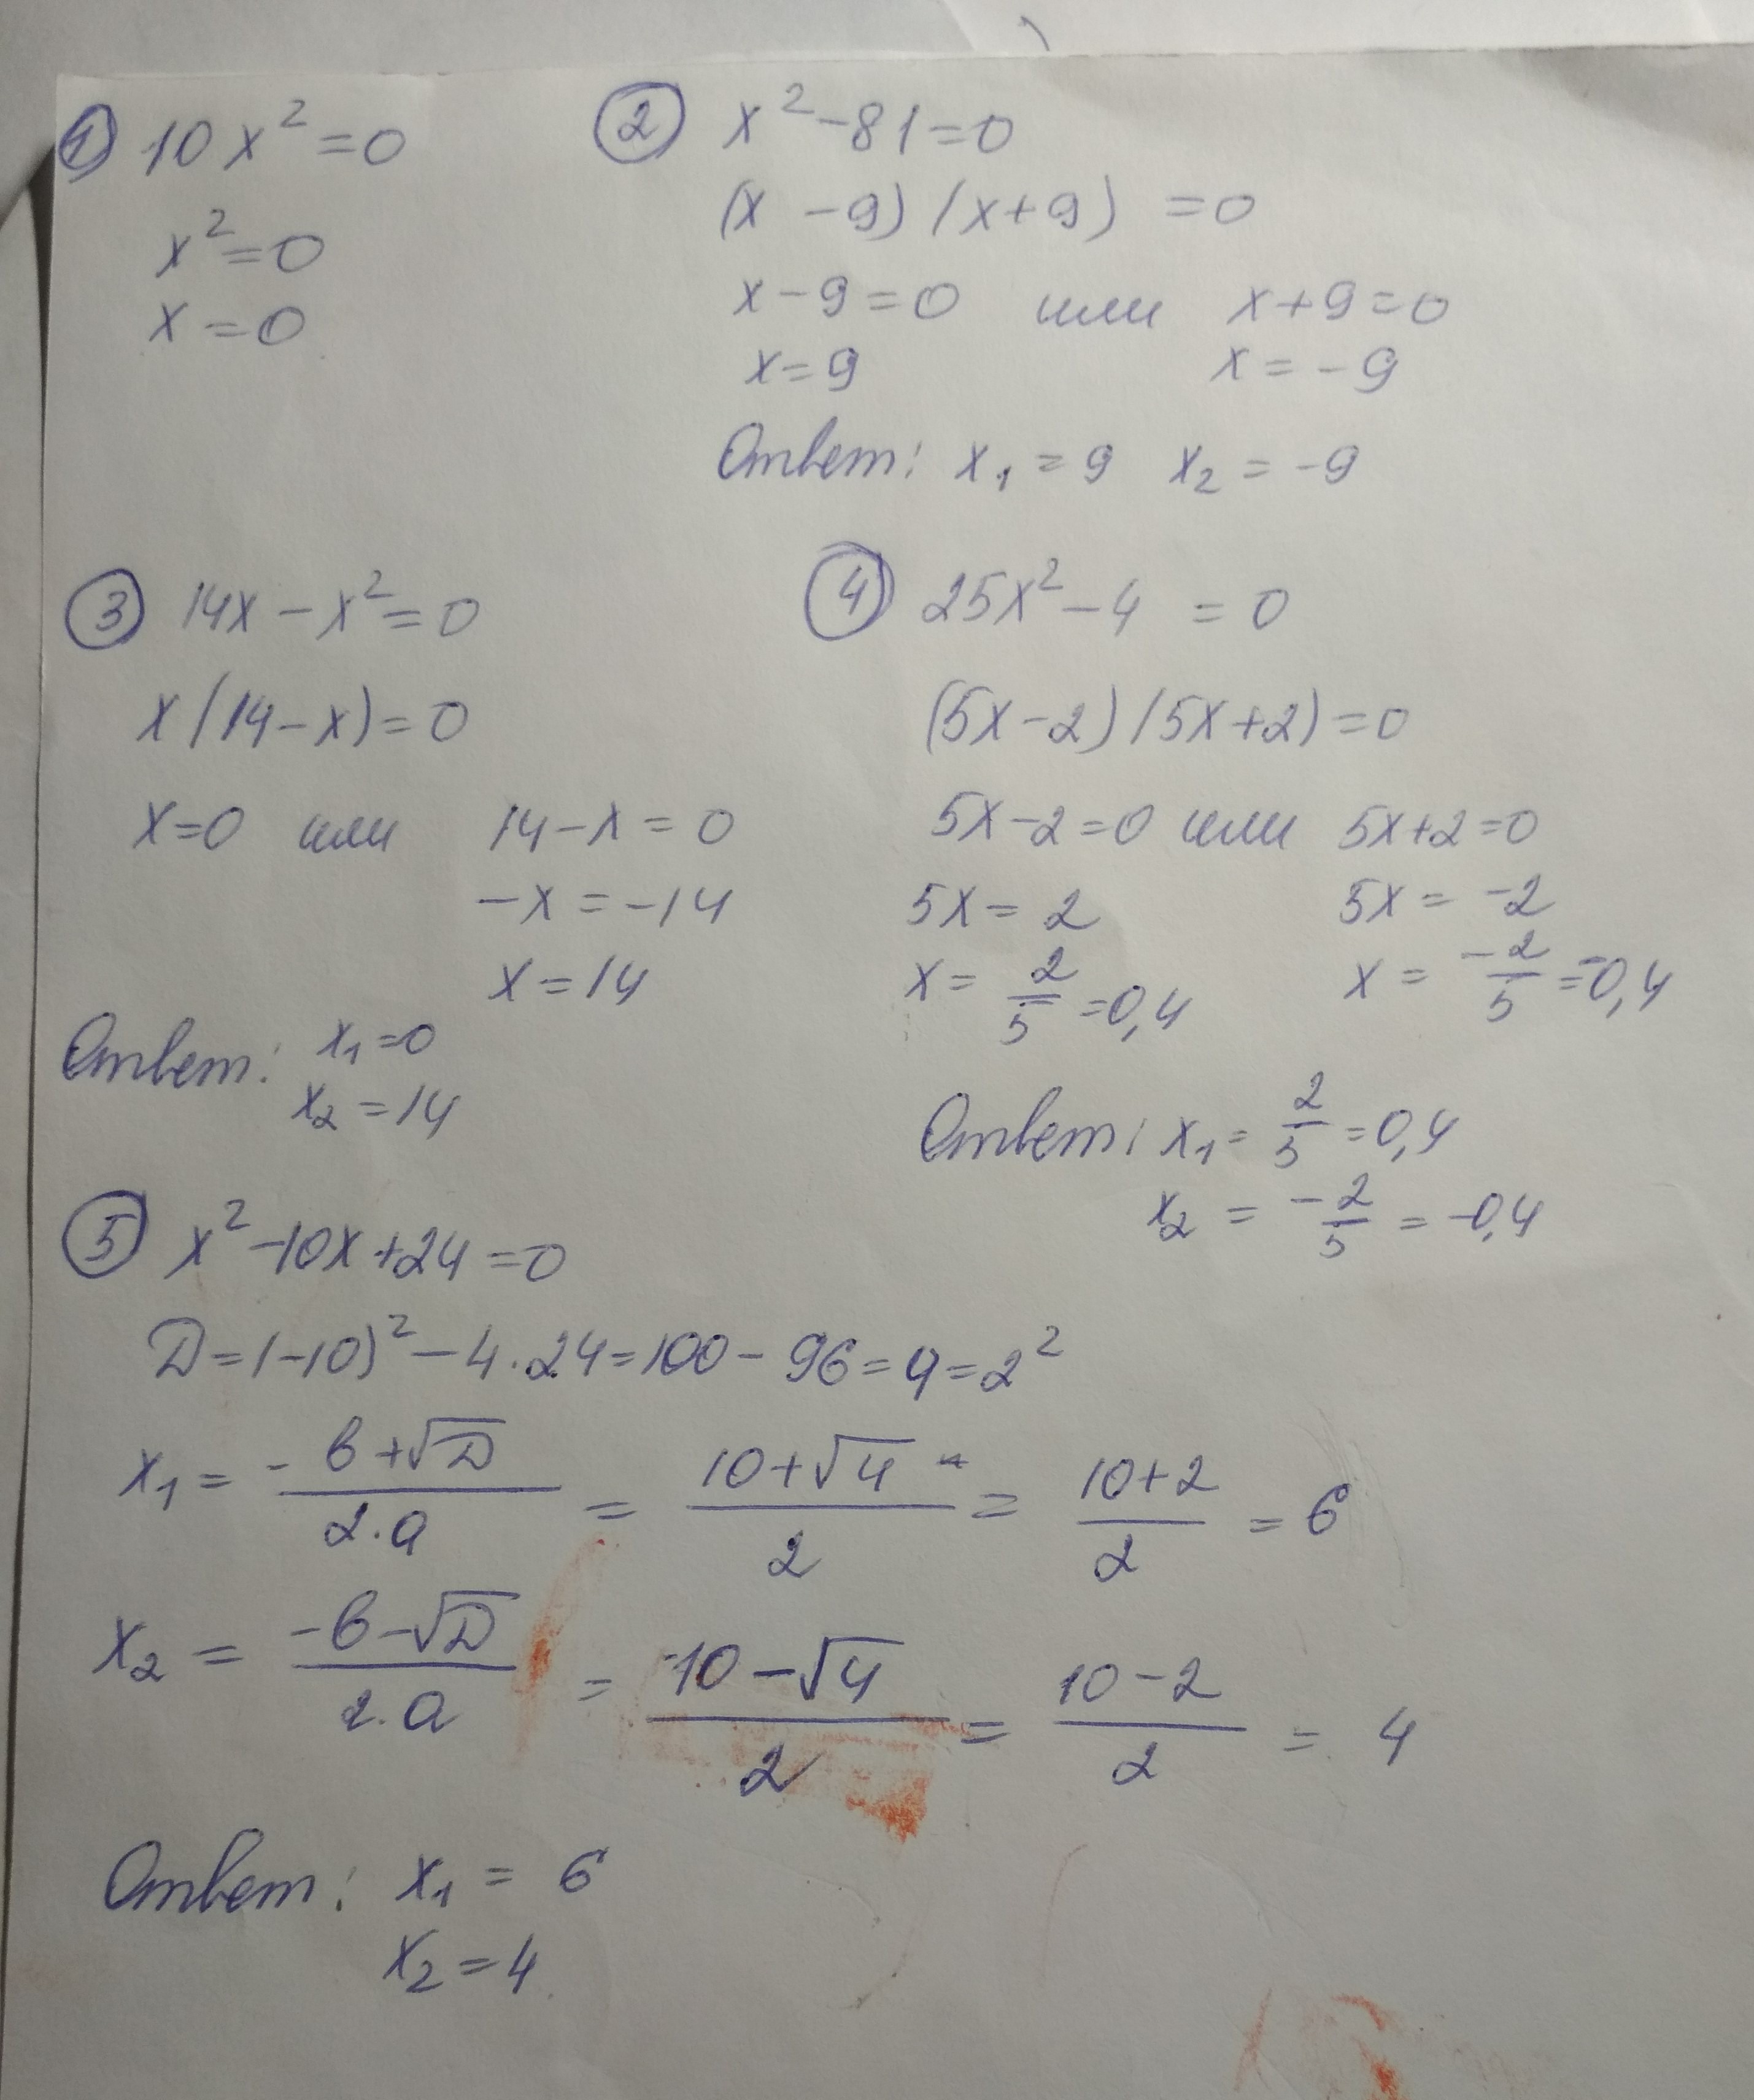 ① 10x² = 0
x² = 0
x = 0
② x² - 81 = 0
(x - 9) (x + 9) = 0
x - 9 = 0 или x + 9 = 0
x = 9 x = -9
Ответ: x₁ = 9 x₂ = -9
③ 14x - x² = 0
x(14 - x) = 0
x = 0 или 14 - x = 0
-x = -14
x = 14
Ответ: x₁ = 0
x₂ = 14
④ 25x² - 4 = 0
(5x - 2) (5x + 2) = 0
5x - 2 = 0 или 5x + 2 = 0
5x = 2 5x = -2
x = 2/5 = 0,4 x = -2/5 = -0,4
Ответ: x₁ = 2/5 = 0,4
x₂ = -2/5 = -0,4
⑤ x² - 10x + 24 = 0
D = (-10)² - 4·24 = 100 - 96 = 4 = 2²
x₁ = (-b + √D)/(2·a) = (10 + √4)/2 = (10 + 2)/2 = 6
x₂ = (-b - √D)/(2·a) = (10 - √4)/2 = (10 - 2)/2 = 4
Ответ: x₁ = 6
x₂ = 4